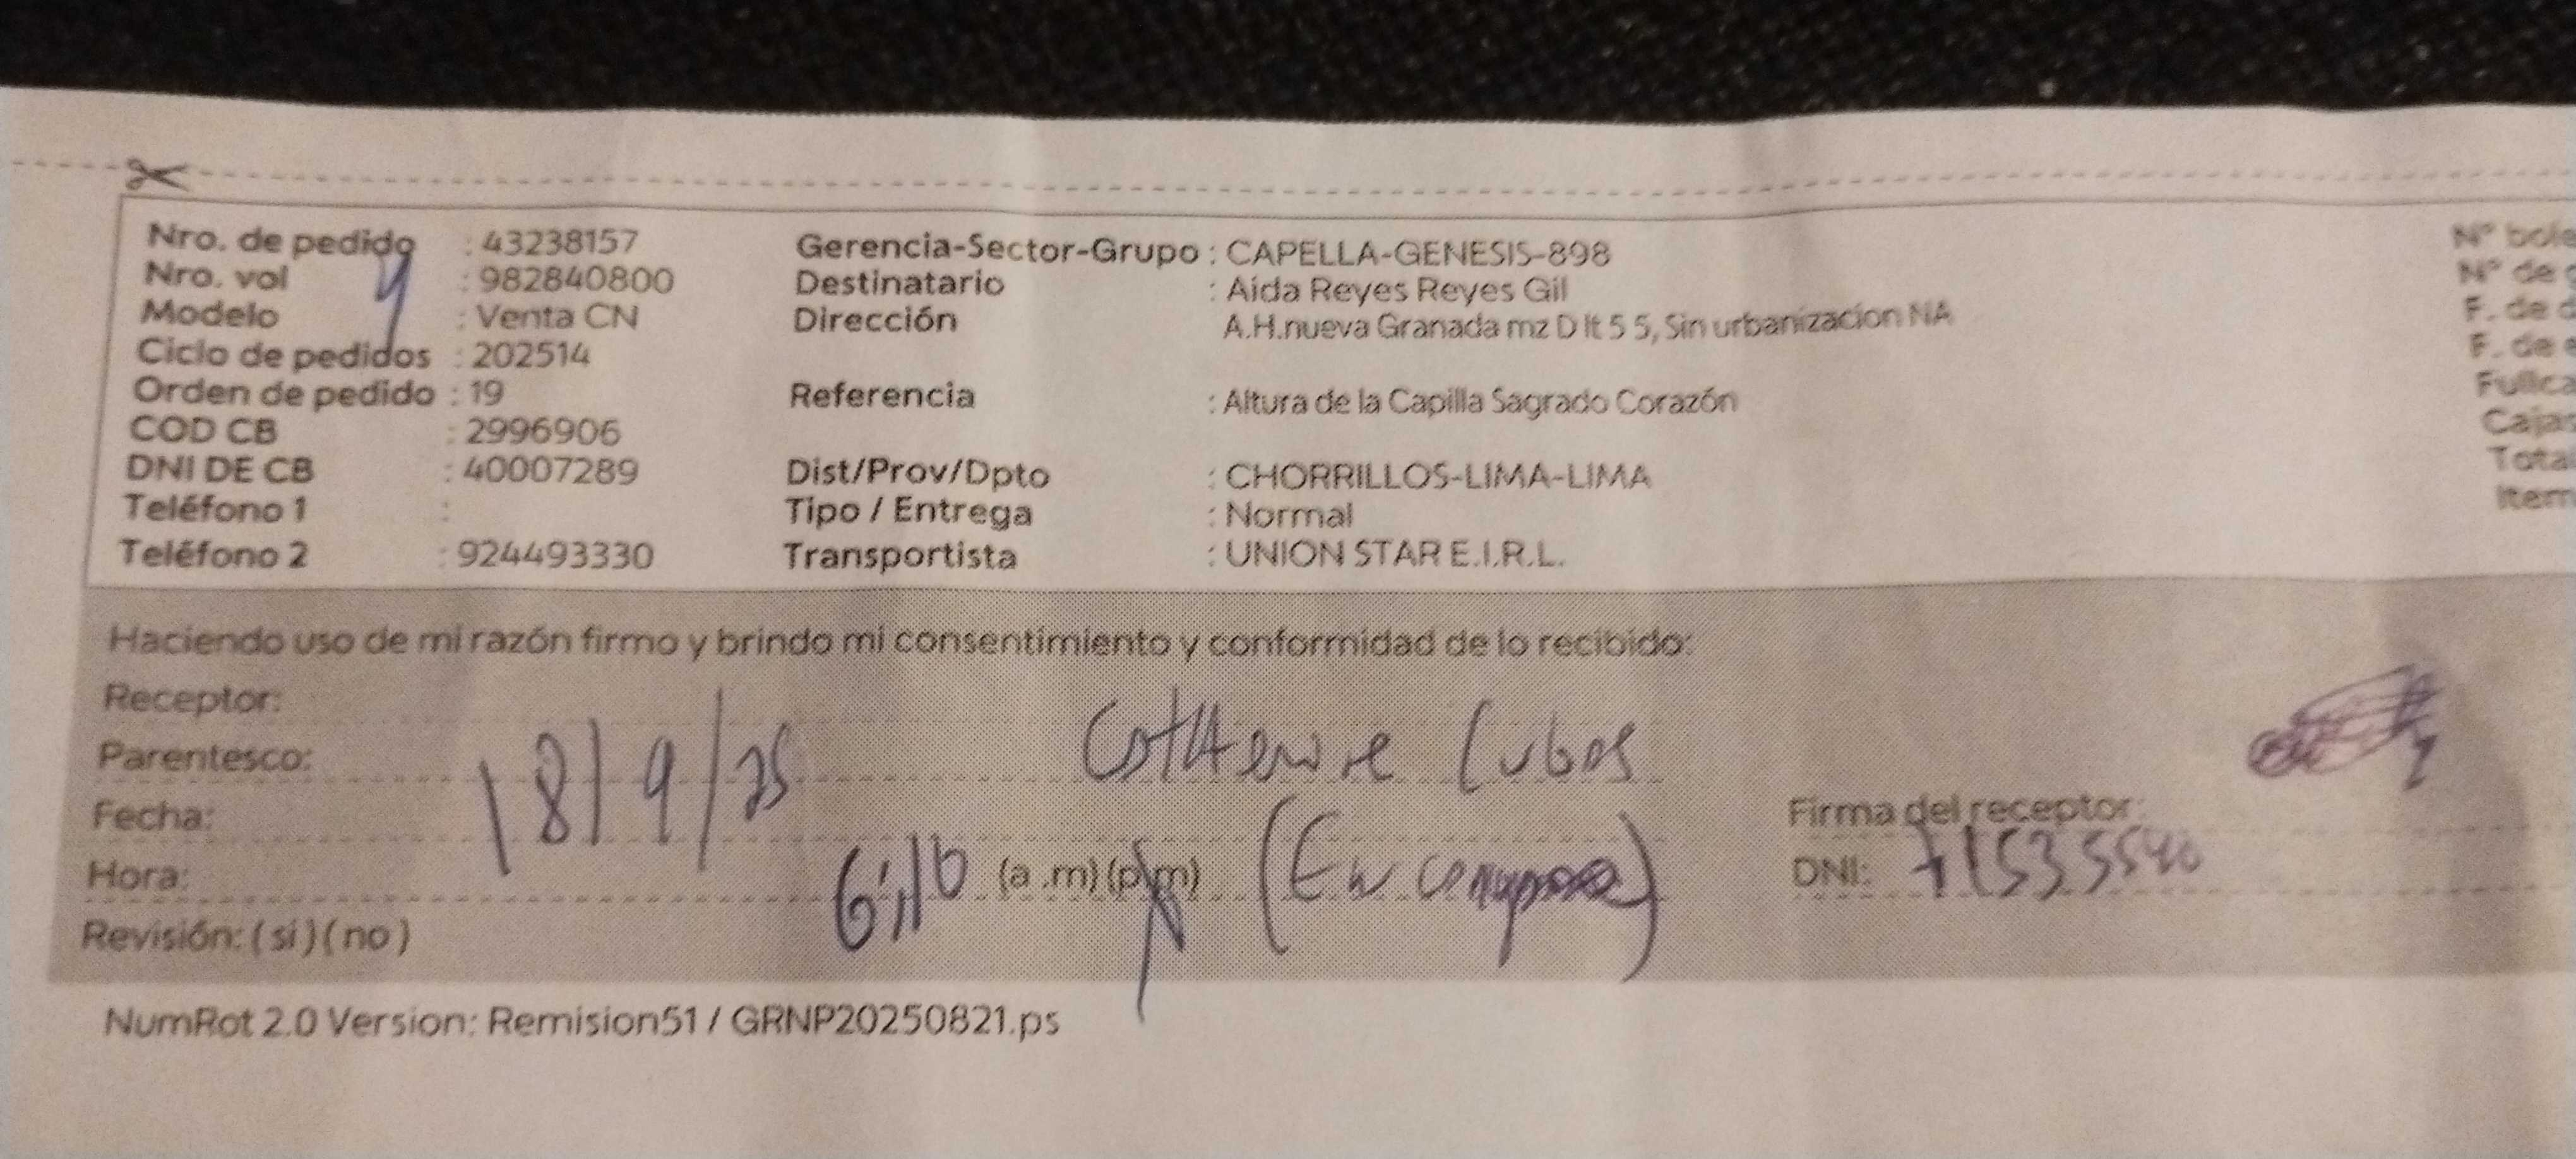 Nro. de pedido : 43238157
Nro. vol : 982840800
Modelo : Venta CN
Ciclo de pedidos : 202514
Orden de pedido : 19
COD CB : 2996906
DNI DE CB : 40007289
Teléfono 1 :
Teléfono 2 : 924493330
Gerencia-Sector-Grupo : CAPELLA-GENESIS-898
Destinatario : Aida Reyes Reyes Gil
Dirección A.H.nueva Granada mz D lt 5 5, Sin urbanizacion NA
Referencia : Altura de la Capilla Sagrado Corazón
Dist/Prov/Dpto : CHORRILLOS-LIMA-LIMA
Tipo / Entrega : Normal
Transportista : UNION STAR E.I.R.L.
N° bole
N° de
F. de
F. de
Fullca
Cajas
Total
Item
Haciendo uso de mi razón firmo y brindo mi consentimiento y conformidad de lo recibido:
Receptor:
Parentesco:
Fecha: 18/9/25
Hora: 6:10 (a .m) (p.m)
Revisión: ( si ) ( no )
Firma del receptor:
DNI: 71535540
NumRot 2.0 Version: Remision51 / GRNP20250821.ps